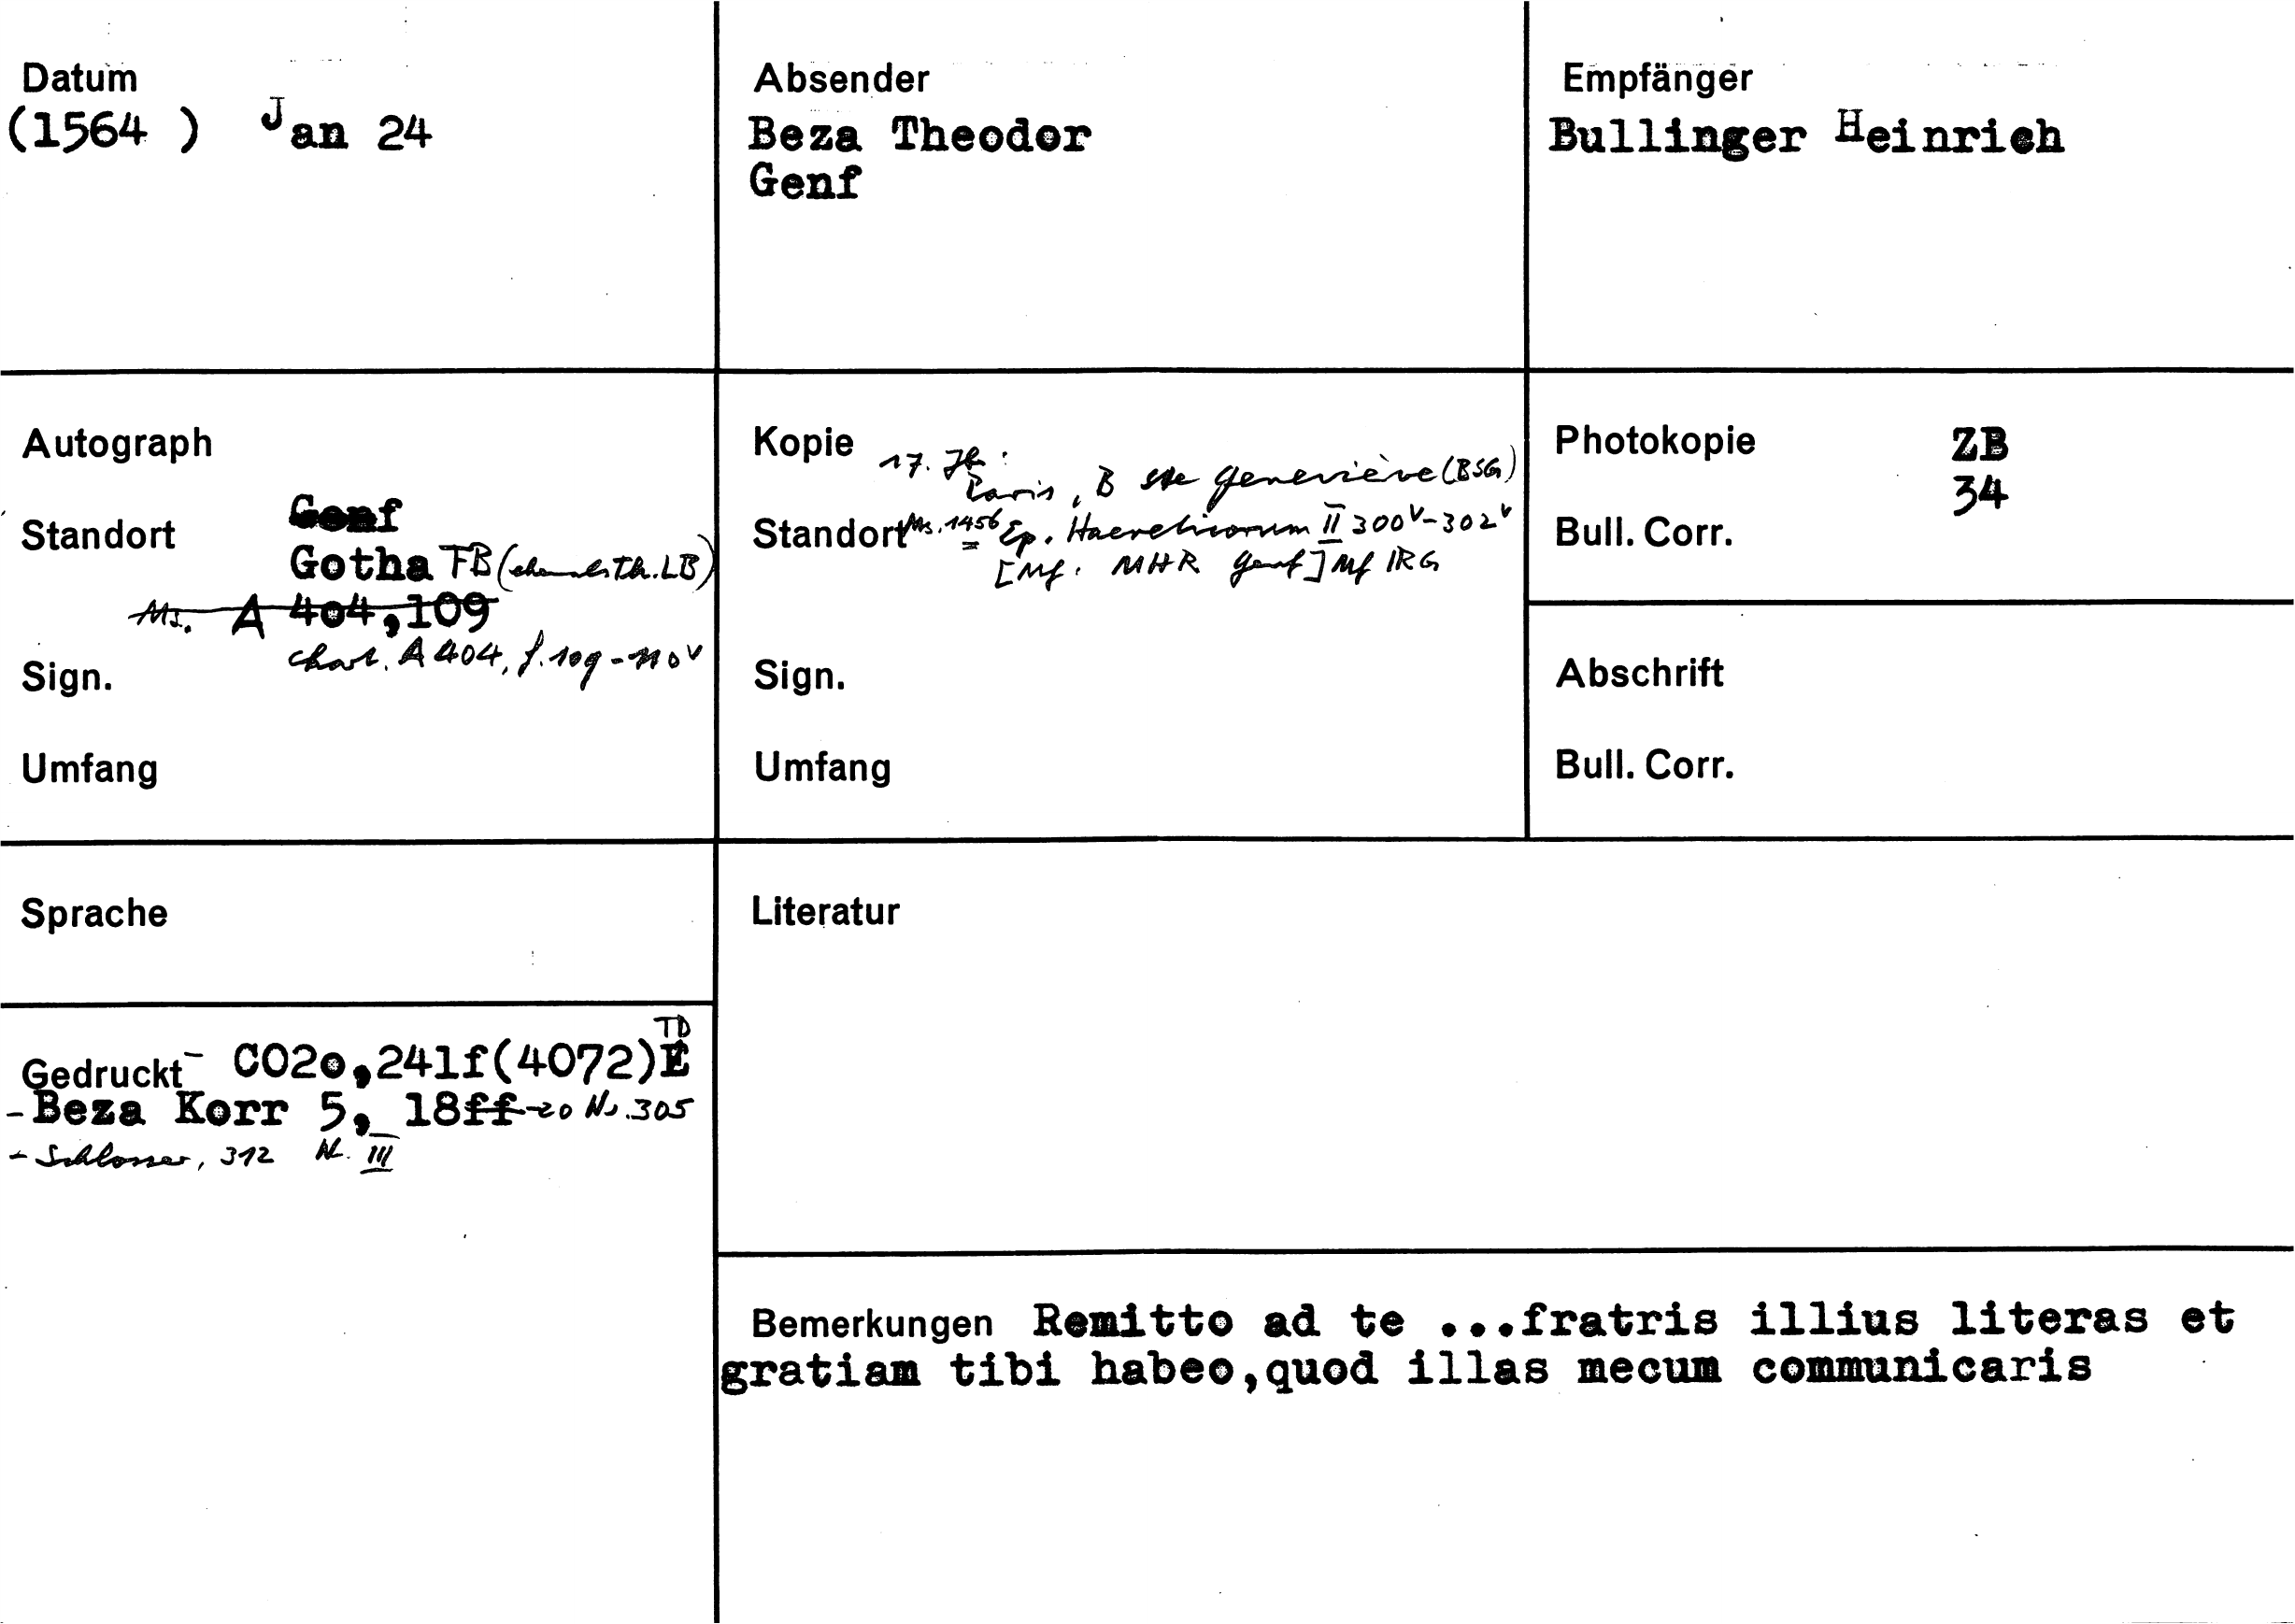 Datum
(1564 ) Jan 24
Absender
Beza Theodor
Genf
Empfänger
Bullinger Heinrich
Autograph
Standort Genf
Gotha FB (ehemals Th. LB)
Ms. A 404,109
Sign. chart. A 404, f. 109-110v
Umfang
Kopie 17. Jh.:
Paris, B Ste Geneviève (BSG)
Standort Ms. 1456 Ep. Haereticorum II 300v-302v
[Mf. MHR Genf] Mf IRG
Sign.
Umfang
Photokopie ZB
34
Bull. Corr.
Abschrift
Bull. Corr.
Sprache
Literatur
TD
Gedruckt - CO2o,241f(4072)E
- Beza Korr 5, 18ff-20 No. 305
- Schlosser, 312 Nr. III
Bemerkungen Remitto ad te ...fratris illius literas et
gratiam tibi habeo,quod illas mecum communicaris